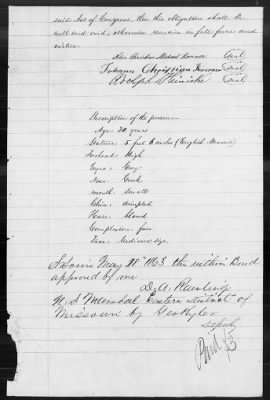 said Act of Congress, then this obligation shall be
null and void, otherwise remain in full force and
virtue.
Christian Michael (Seal)
Johann Christian (Seal)
Adolph Reinicke (Seal)
Description of the person:
Age: 20 years
Stature: 5 feet 6 inches (English Measure)
Forehead: High
Eyes: Grey
Nose: Greek
Mouth: Small
Chin: dimpled
Hair: blond
Complexion: fair
Face: Medium Size.
St Louis May 18th 1863 the within Bond
approved by me
U. S Marshal Eastern District of
Missouri by
Deputy